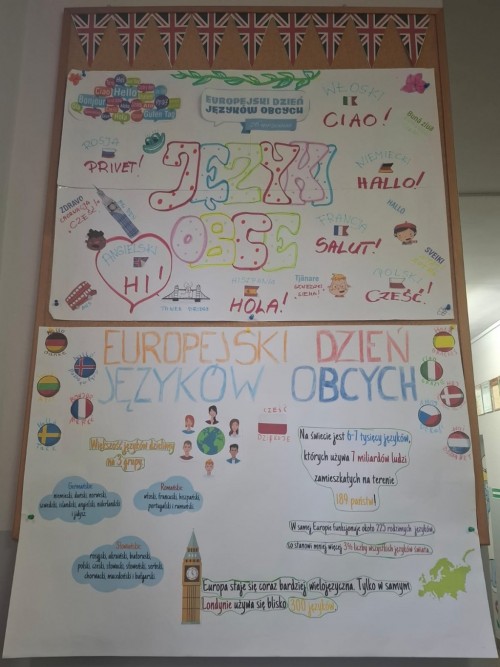 Ciao Hello
Bonjour
Guten Tac
EUROPEJSKI DZIEŃ
JĘZYKÓW OBCYCH
WŁOSKI
CIAO!
ROSJA
PRIVET!
JĘZYKI
OBCE
NIEMIECKI
HALLO!
HALLO
ZDRAVO
CZEŚĆ
ANGIELSKI
HI!
FRANCJA
SALUT!
SVEIKI
HISZPANIA
HOLA!
Tjänare
SIEMA!
POLSKI
CZEŚĆ!
TOWER BRIDGE
EUROPEJSKI DZIEŃ
JĘZYKÓW OBCYCH
CZEŚĆ
Większość języków dzielimy
na 3 grupy:
Germańskie:
niemiecki, duński, norweski,
szwedzki, islandzki, angielski, niderlandzki
i jidysz.
Romańskie:
włoski, francuski, hiszpański,
portugalski i rumuński.
Słowiańskie:
rosyjski, ukraiński, białoruski,
polski, czeski, słowacki, słoweński, serbski,
chorwacki, macedoński i bułgarski.
Na świecie jest 6-7 tysięcy języków,
których używa 7 miliardów ludzi
zamieszkałych na terenie
189 państw!
W samej Europie funkcjonuje około 225 rodzimych języków,
co stanowi mniej więcej 3% liczby wszystkich języków świata.
Europa staje się coraz bardziej wielojęzyczna. Tylko w samym
Londynie używa się blisko 300 języków.